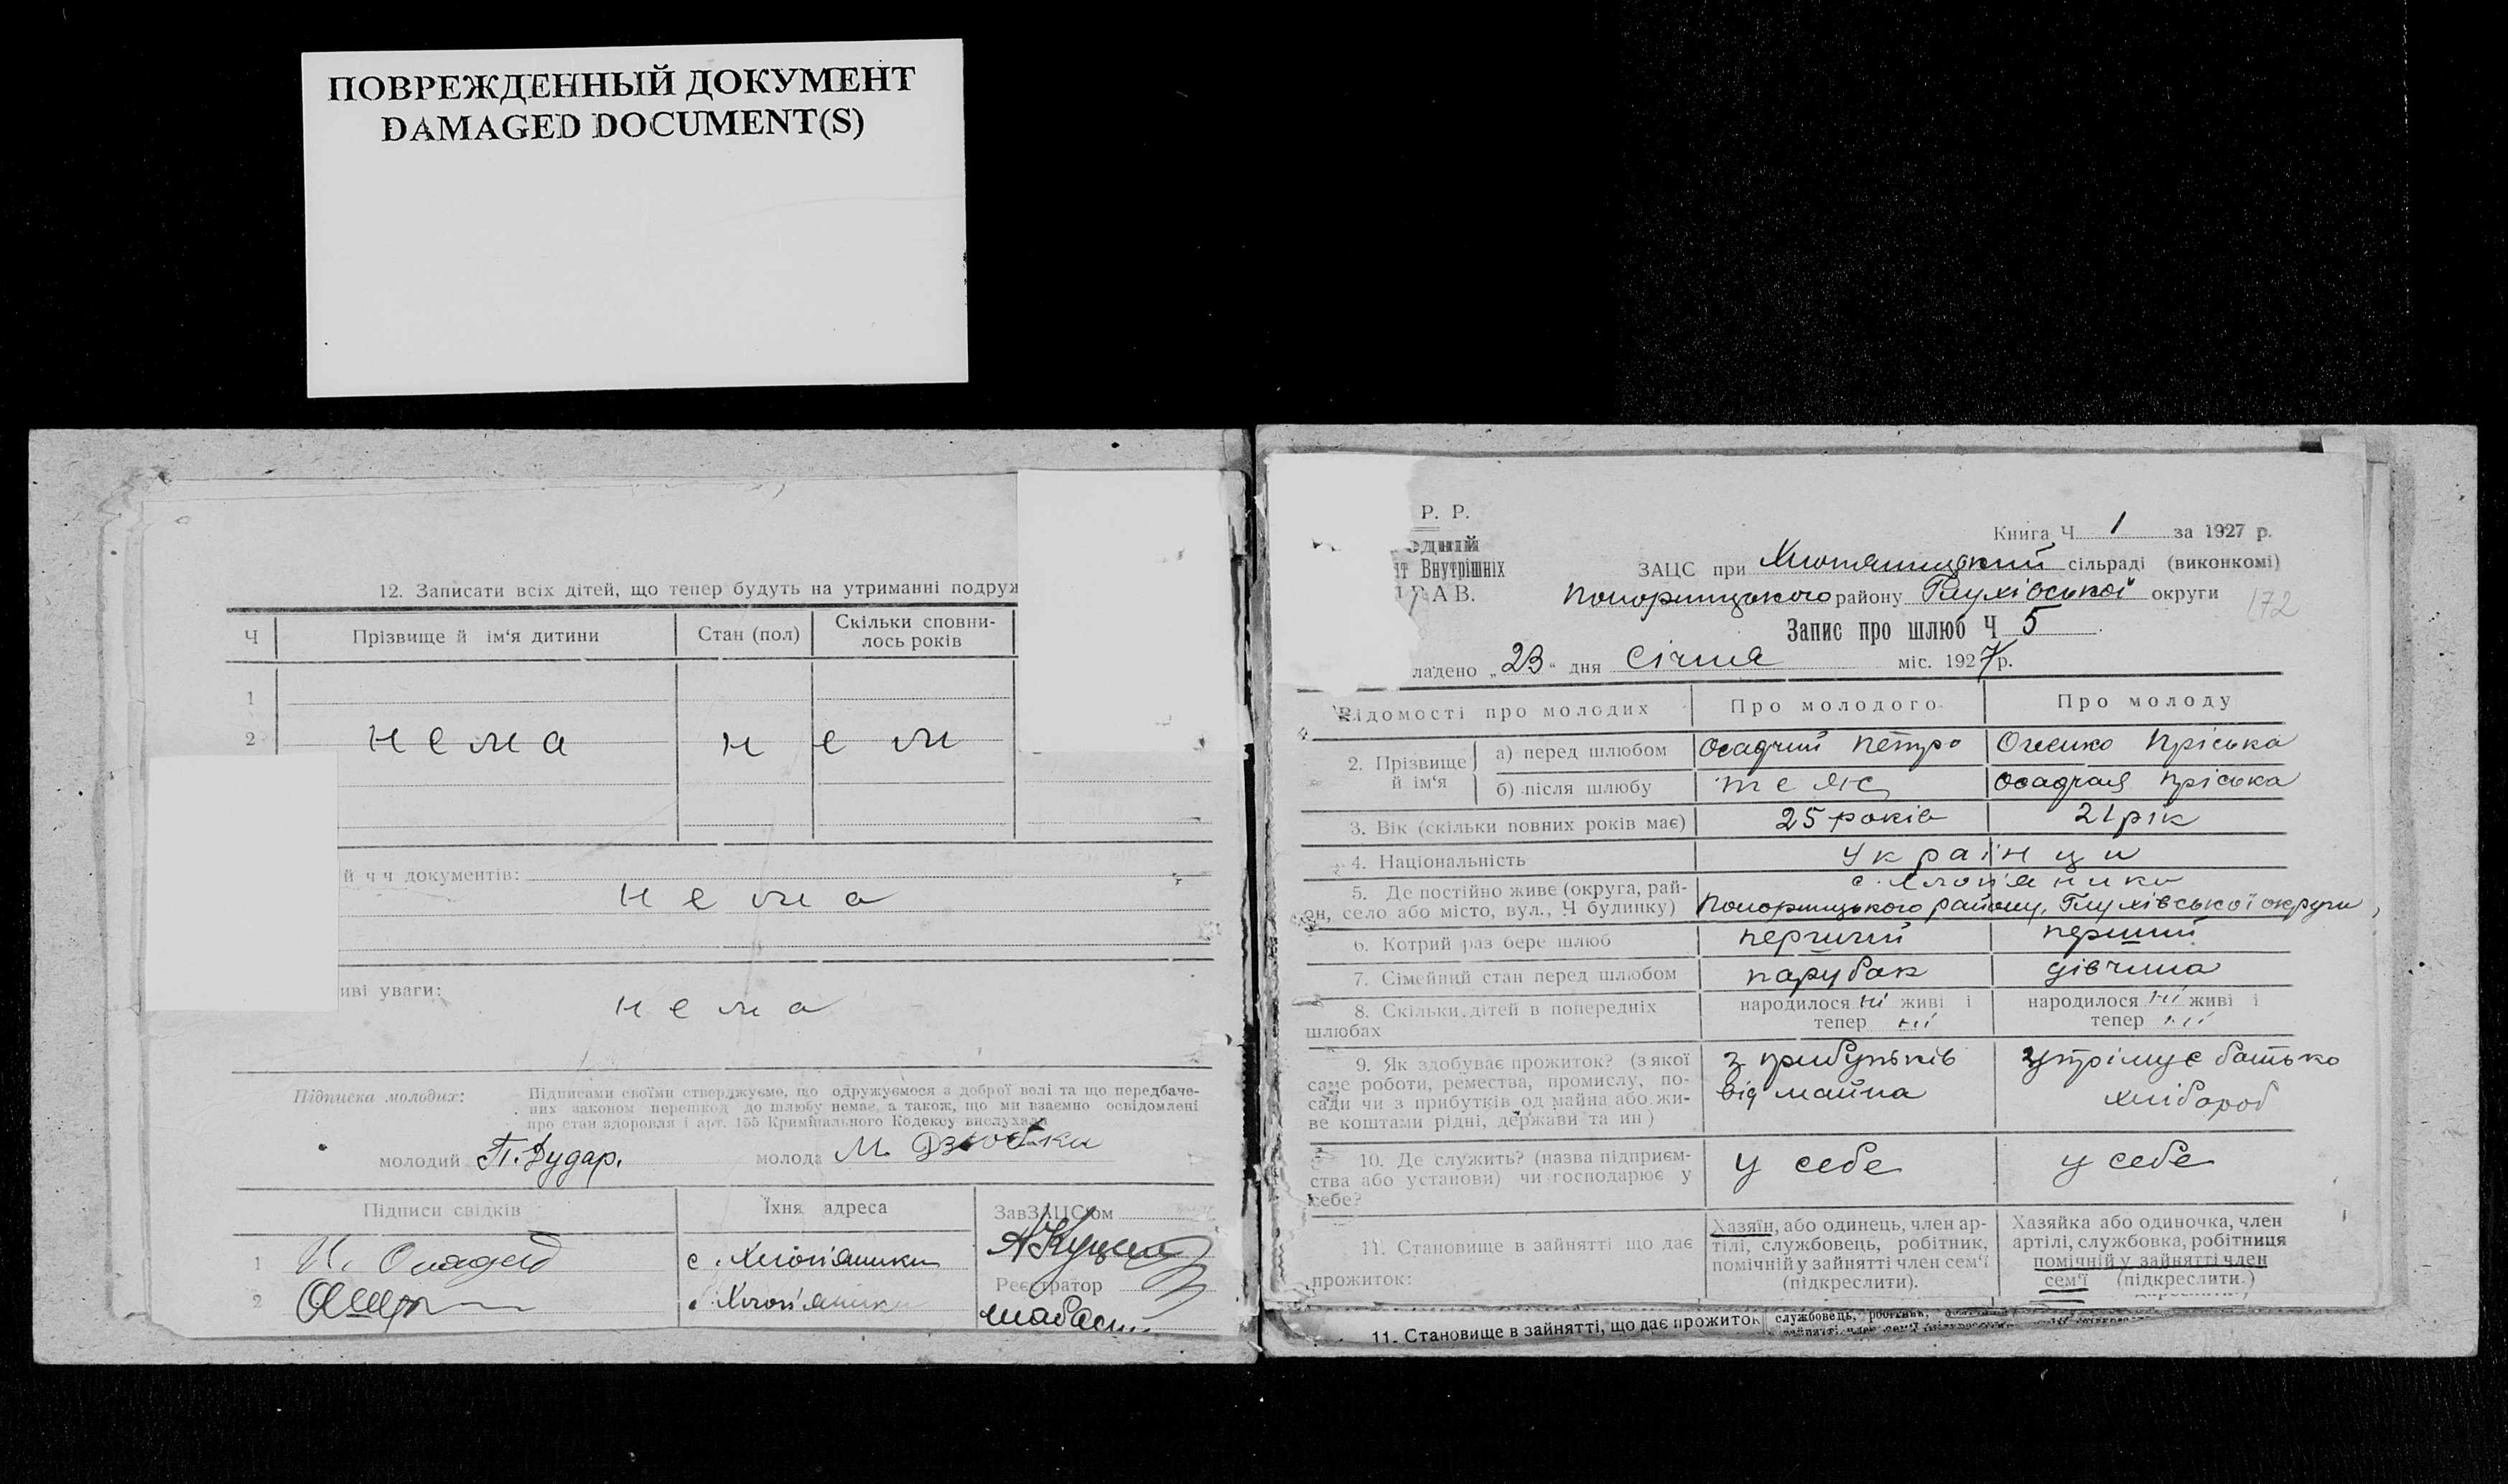 ПОВРЕЖДЕННЫЙ ДОКУМЕНТ
DAMAGED DOCUMENT(S)
12. Записати всіх дітей, що тепер будуть на утриманні подруж
Ч Прізвище й ім'я дитини Стан (пол) Скільки сповни-
лось років
1
2 нема нем
й ч ч документів:
нема
иві уваги:
нема
Підписка молодих: Підписами своїми стверджуємо, що одружуємося з доброї волі та що передбаче-
них законом перешкод до шлюбу немає, а також, що ми взаємно освідомлені
про стан здоровля і арт. 155 Кримінального Кодексу вислухали
молодий П. Дудар. молода М.
Підписи свідків Їхня адреса ЗавЗАЦСом
1 с. Хлоп'яники
Реєстратор
2 с. Хлоп'яники
Р. Р.
одній
нт Внутрішніх
РАВ.
Книга Ч 1 за 1927 р.
ЗАЦС при сільраді (виконкомі)
Понорницького району Глухівської округи
172
Запис про шлюб Ч 5
ладено „23“ дня Січня міс. 1927 р.
Відомості про молодих Про молодого Про молоду
2. Прізвище й ім'я а) перед шлюбом Осадчий Петро Приська
б) після шлюбу теж Осадчая Пріська
3. Вік (скільки повних років має) 25 років 21 рік
4. Національність Українци
5. Де постійно живе (округа, рай- с. Хлоп'яники
он, село або місто, вул., Ч будинку) Понорницького району, Глухівської округи,
6. Котрий раз бере шлюб перший перший
7. Сімейний стан перед шлюбом парубак дівчина
8. Скільки дітей в попередніх шлюбах народилося ні живі і народилося ні живі і
тепер ні тепер ні
9. Як здобуває прожиток? (з якої з прибутків утрімує батько
саме роботи, ремества, промислу, по- від майна хлібороб
сади чи з прибутків од майна або жи-
ве коштами рідні, держави та ин)
10. Де служить? (назва підприєм- у себе у себе
ства або установи) чи господарює у
себе?
11. Становище в зайнятті що дає прожиток: Хазяїн, або одинець, член ар-
тілі, службовець, робітник,
помічній у зайнятті член сем'ї
(підкреслити).
Хазяйка або одиночка, член
артілі, службовка, робітниця
помічній у зайнятті член
сем'ї (підкреслити.)
11. Становище в зайнятті, що дає прожиток службовець, робітник,